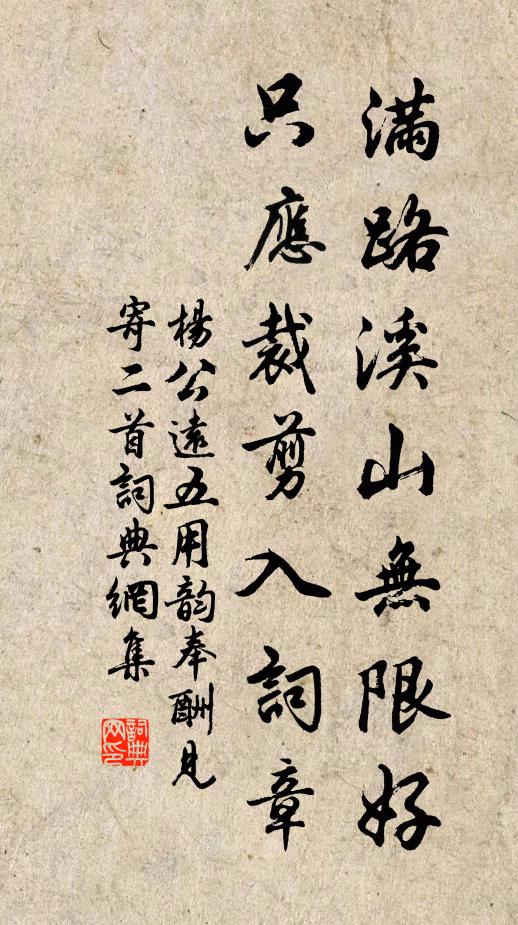 滿路溪山無限好
只應裁剪入詞章
楊公遠五用韵奉酬見
寄二首詞典網集
詞典網印